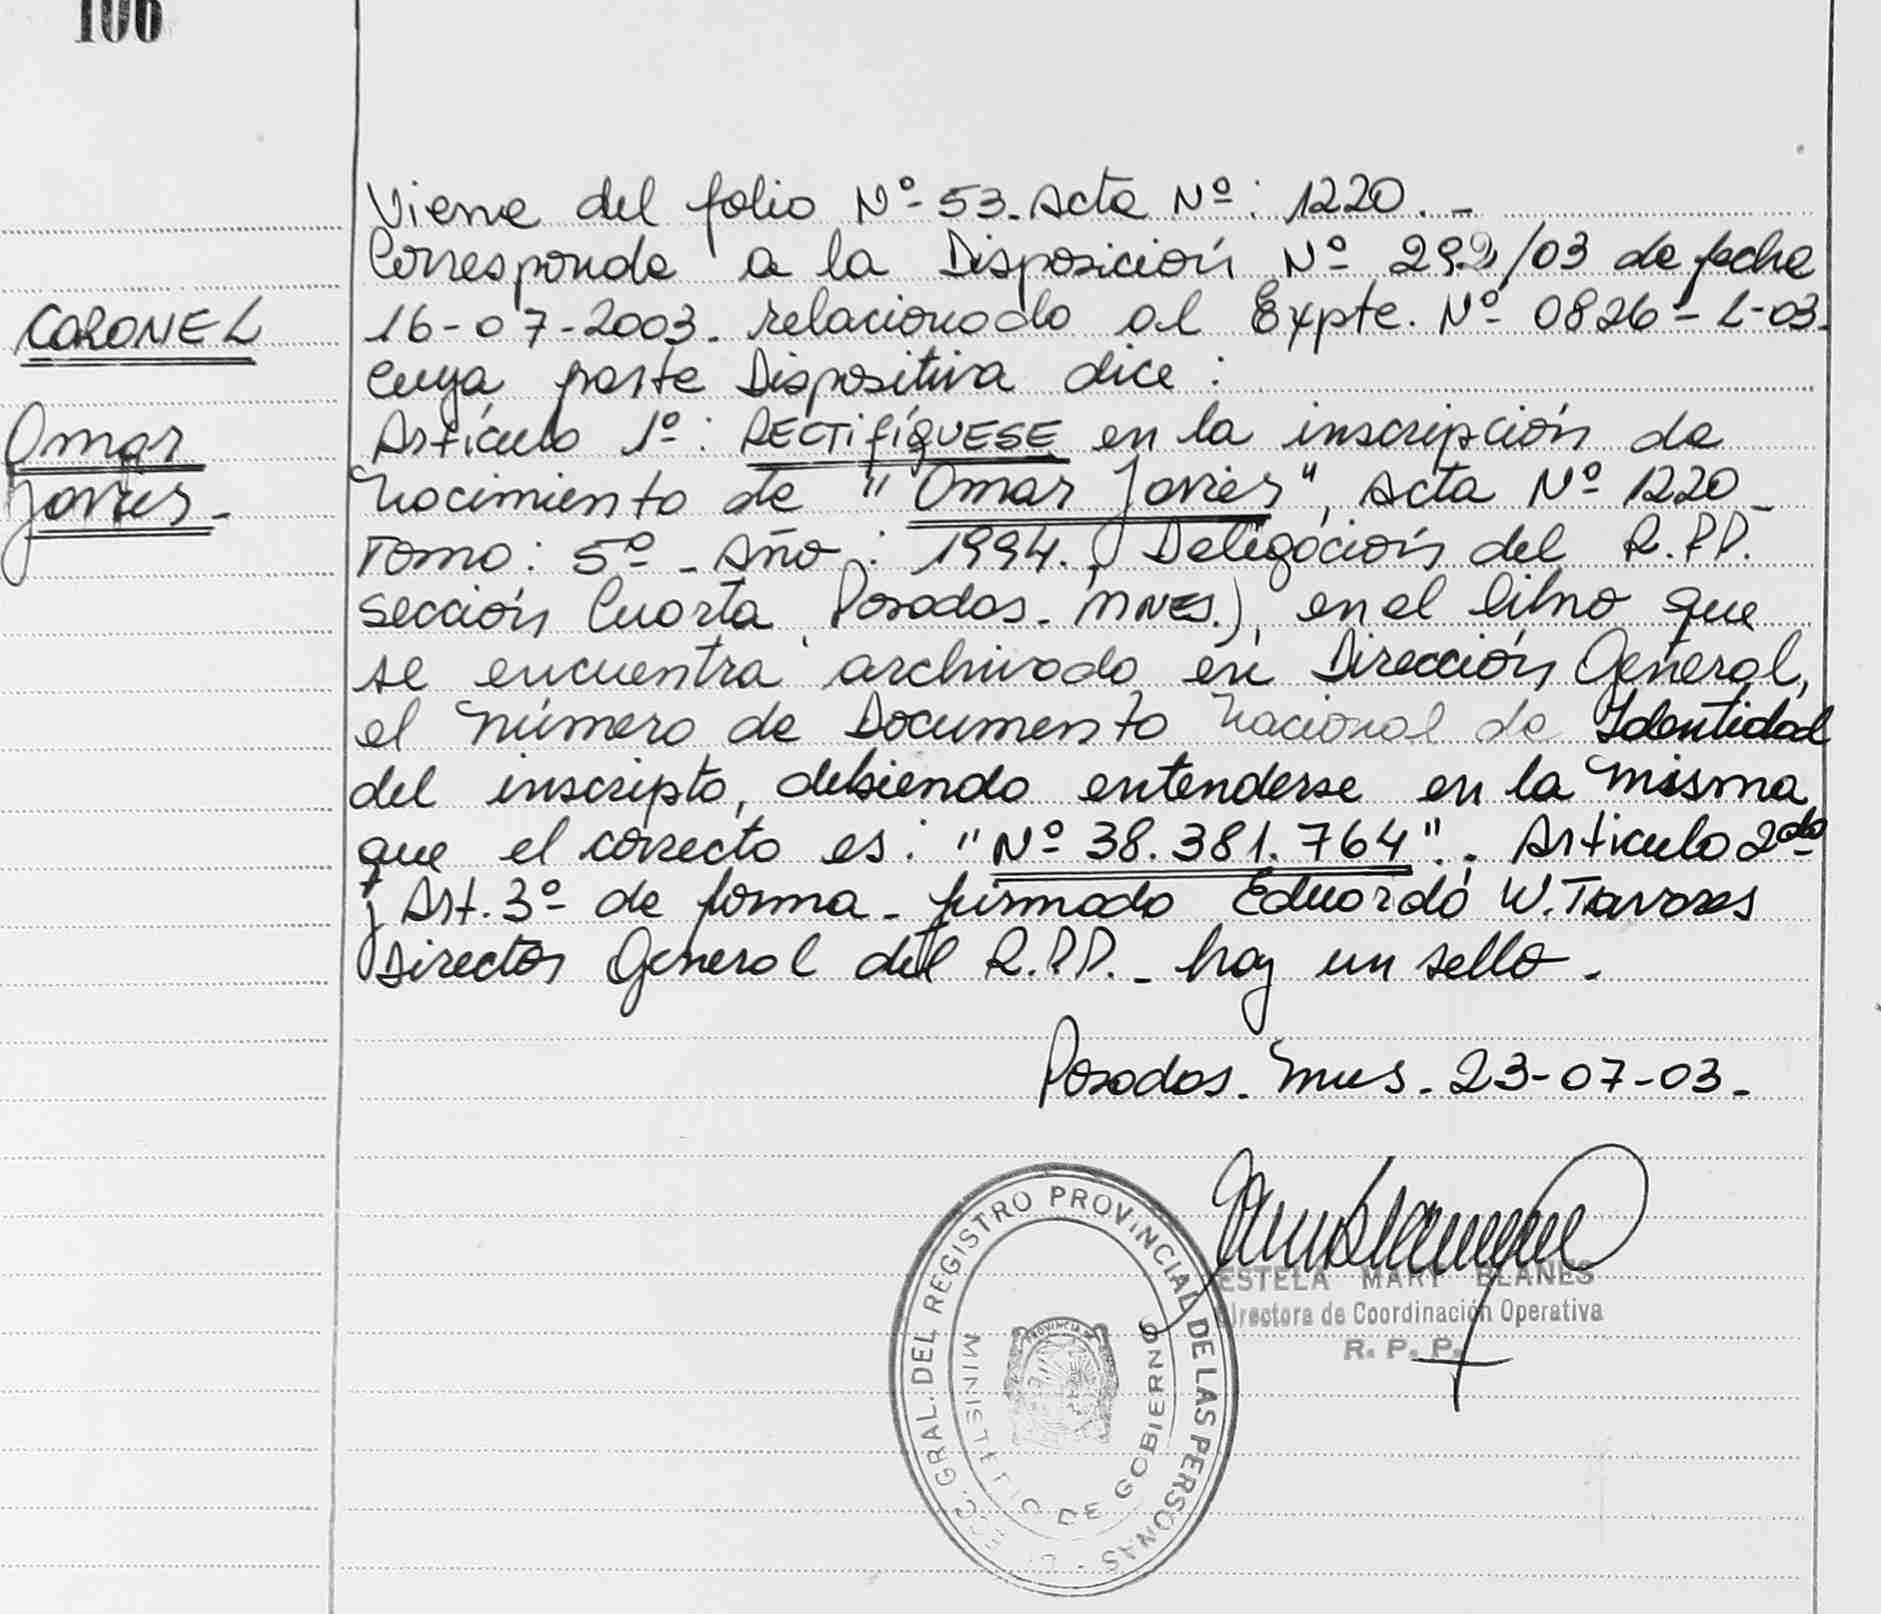 106
CORONEL
Omar
Javier.-
Viene del folio Nº-53. Acta Nº: 1220.-
Corresponde a la Disposición Nº 292/03 de fecha
16-07-2003. relacionado al Expte. Nº 0826-L-03.
Cuya parte Dispositiva dice:
Artículo 1º: RECTIFÍQUESE en la inscripción de
Nacimiento de "Omar Javier", Acta Nº 1220-
Tomo: 5º - Año: 1994., Delegación del R.P.P.
Sección Cuarta Posadas. MNES.), en el libro que
se encuentra archivado en Dirección General,
el número de Documento Nacional de Identidad
del inscripto, debiendo entenderse en la misma,
que el correcto es: "Nº 38.381.764". Articulo 2do
y Art. 3º de forma. firmado Eduardo W. Tavares
Director General del R.P.P.- hay un sello.
Posadas. Mnes. 23-07-03.-
ESTELA MARY BLANES
Directora de Coordinación Operativa
R. P. P.
GRAL. DEL REGISTRO PROVINCIAL DE LAS PERSONAS
MINISTERIO DE GOBIERNO
PROVINCIA DE